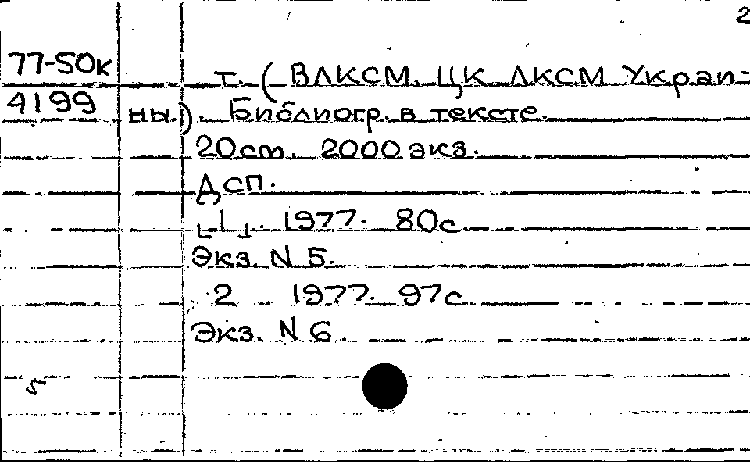 2
77-50к
т. (ВЛКСМ. ЦК ЛКСМ Украи-
4199 ны). Библиогр. в тексте.
20см. 2000экз.
Дсп.
[1]. 1977. 80с
Экз. N 5.
2 1977. 97с
Экз. N 6.
5